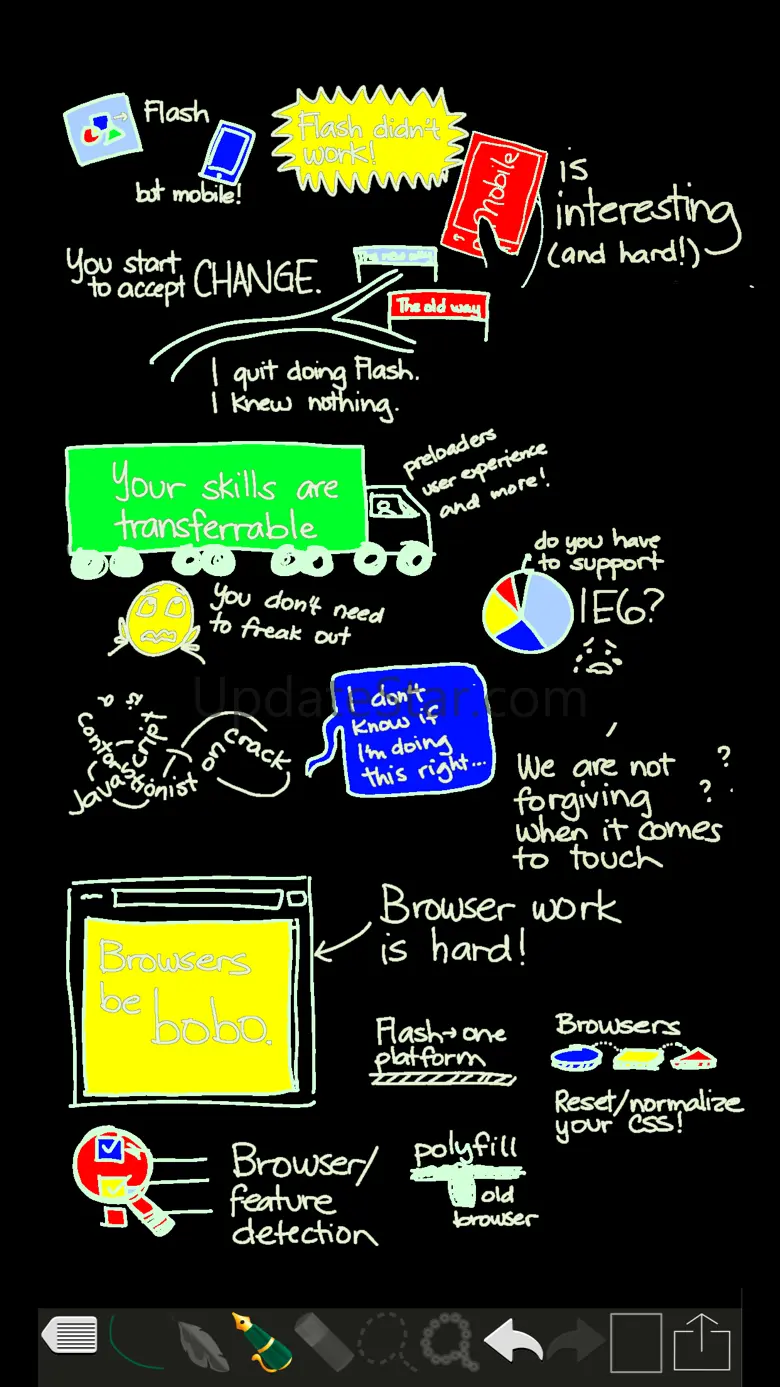 Flash
but mobile!
Flash didn't
work!
Mobile
is
interesting
(and hard!)
You start
to accept CHANGE.
The new way
The old way
I quit doing Flash.
I knew nothing.
Your skills are
transferrable
preloaders
user experience
and more!
You don't need
to freak out
do you have
to support
IE6?
UpdateStar.com
Javascript
is a
contortionist
on crack
I don't
know if
I'm doing
this right...
We are not
forgiving
when it comes
to touch
? ?
Browsers
be bobo.
Browser work
is hard!
Flash→one
platform
Browsers
Reset/normalize
your CSS!
Browser/
feature
detection
polyfill
old
browser